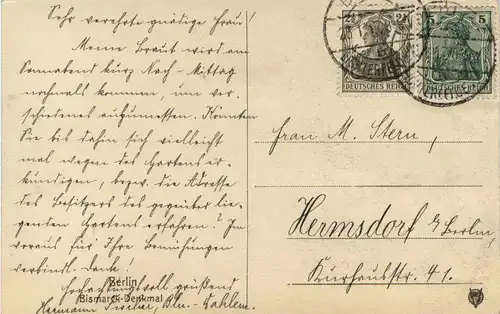 Sehr verehrte gnädige Frau!
Meine Braut wird am
Sonnabend kurz Nach-Mittag
nochmals kommen, um ver-
schiedenes auszumessen. Könnten
Sie bis dahin sich vielleicht
mal wegen des Gartens er-
kundigen, bezw. die Adresse
des Besitzers des gegenüber lie-
genden Gartens erfahren? Im
voraus für Ihre Bemühungen
verbindl. Dank!
Hochachtungsvoll grüßend
Hermann Fischer, Bln.-Dahlem.
Berlin
Bismarck-Denkmal
2½ 2½
DEUTSCHES REICH
5 5
DEUTSCHES REICH
Frau M. Stern,
Hermsdorf b/Berlin,
Kurhausstr. 41.